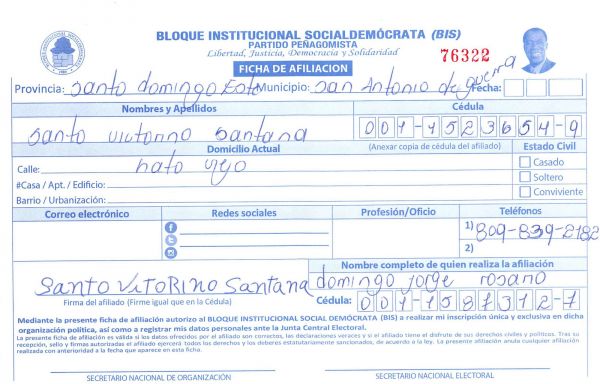 BLOQUE INSTITUCIONAL SOCIALDEMÓCRATA (BIS)
PARTIDO PEÑAGOMISTA
Libertad, Justicia, Democracia y Solidaridad
FICHA DE AFILIACION
76322
Provincia: Santo domingo Este Municipio: San Antonio de guerra Fecha:
Nombres y Apellidos Cédula
Santo victorino Santana 001-1523654-9
Domicilio Actual (Anexar copia de cédula del afiliado) Estado Civil
Calle: hato viejo Casado
#Casa / Apt. / Edificio: Soltero
Barrio / Urbanización: Conviviente
Correo electrónico Redes sociales Profesión/Oficio Teléfonos
1) 809-839-2182
2)
Nombre completo de quien realiza la afiliación
Santo Vitorino Santana domingo jorge rosario
Firma del afiliado (Firme igual que en la Cédula) Cédula: 001-1587312-7
Mediante la presente ficha de afiliación autorizo al BLOQUE INSTITUCIONAL SOCIAL DEMÓCRATA (BIS) a realizar mi inscripción única y exclusiva en dicha
organización política, así como a registrar mis datos personales ante la Junta Central Electoral.
La presente ficha de afiliación es válida si los datos ofrecidos por el afiliado son correctos, las declaraciones veraces y si el afiliado tiene el disfrute de sus derechos civiles y políticos. Tras su
recepción, sello y firmas autorizadas el afiliado ejercerá todos los derechos y los deberes estatutariamente sancionados, de acuerdo a la ley. La presente afiliación anula cualquier afiliación
realizada con anterioridad a la fecha que aparece en esta ficha.
SECRETARIO NACIONAL DE ORGANIZACIÓN SECRETARIO NACIONAL ELECTORAL